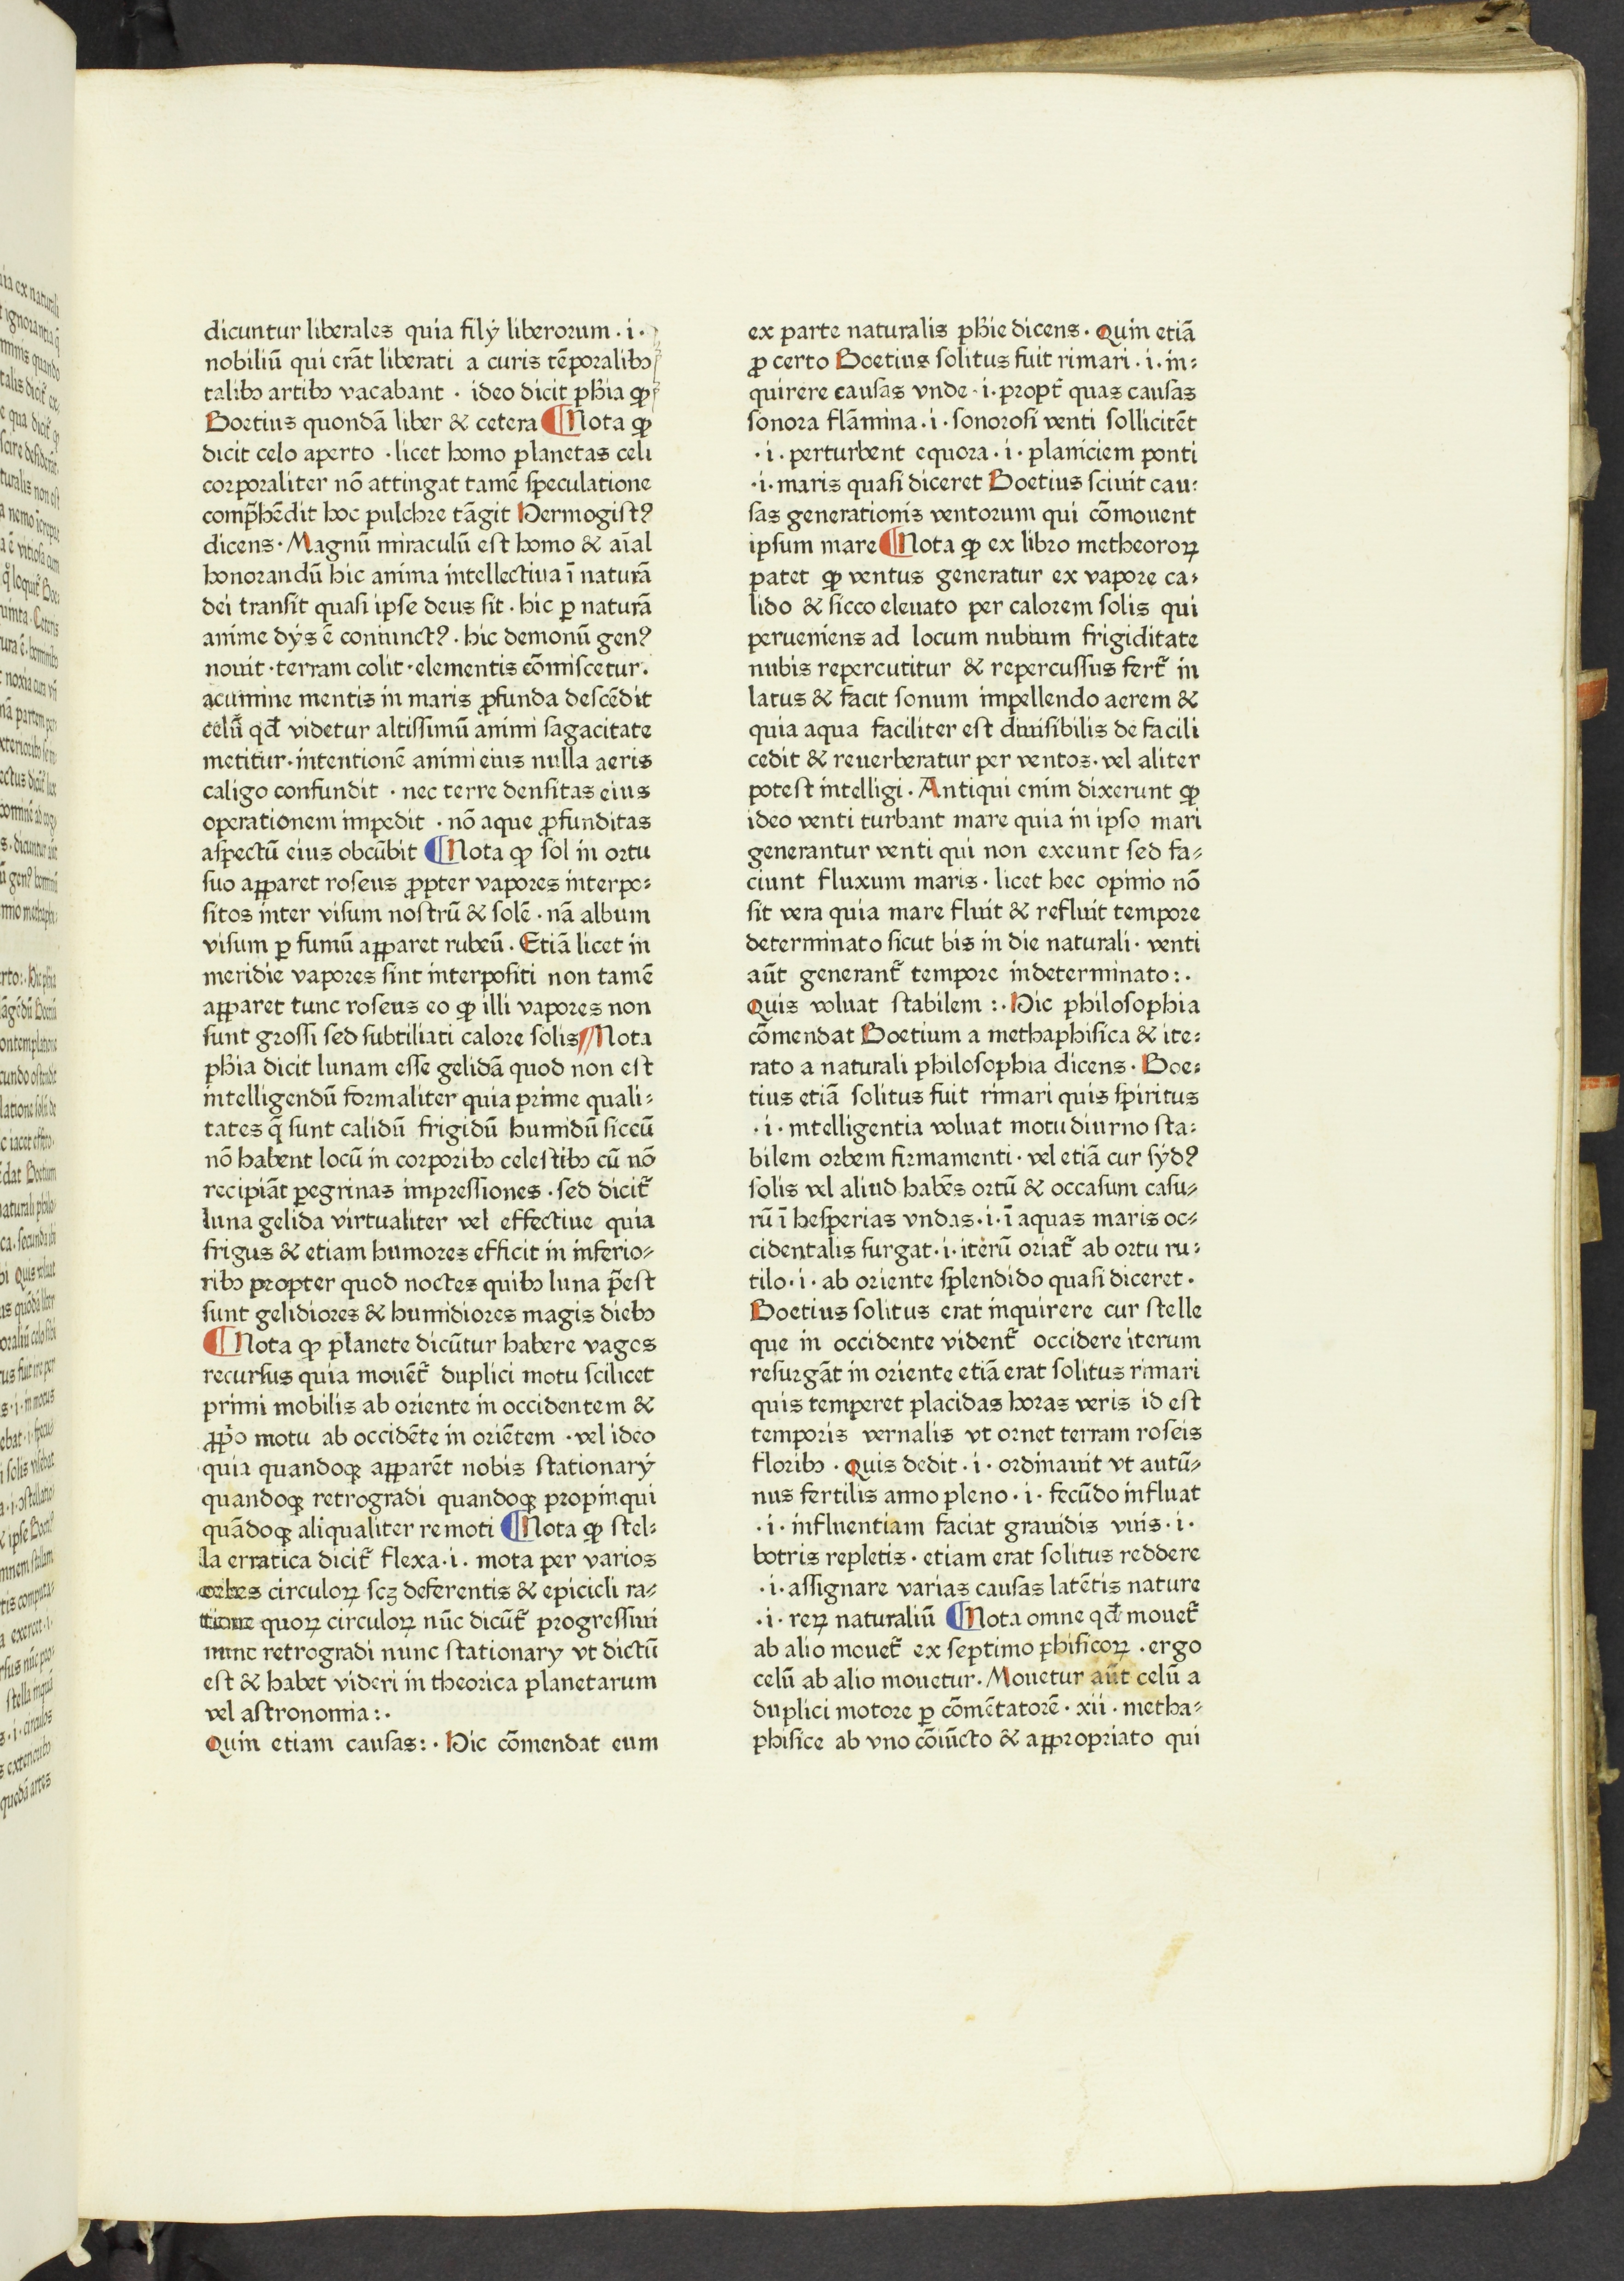 dicuntur liberales quia filij liberorum · i ·
nobiliū qui erāt liberati a curis tēporalibꝫ
talibꝫ artibꝫ vacabant · ideo dicit phīa ꝙ
Boetius quondā liber & cetera ¶Nota ꝙ
dicit celo aperto · licet homo planetas celi
corporaliter nō attingat tamē speculatione
comp̄hēdit hoc pulchre tāgit Hermogistꝰ
dicens · Magnū miraculū est homo & aīal
honorandū hic anima intellectiua ī naturā
dei transit quasi ipse deus sit · hic ꝑ naturā
anime dijs ē coniunctꝰ · hic demonū genꝰ
nouit · terram colit · elementis cōmiscetur ·
acumine mentis in maris ꝓfunda descēdit
celū qd̄ videtur altissimū animi sagacitate
metitur · intentionē animi eius nulla aeris
caligo confundit · nec terre densitas eius
operationem impedit · nō aque ꝓfunditas
aspectū eius obcūbit ¶Nota ꝙ sol in ortu
suo apparet roseus ꝓpter vapores interpo⸗
sitos inter visum nostrū & solē · nā album
visum ꝑ fumū apparet rubeū · Etiā licet in
meridie vapores sint interpositi non tamē
apparet tunc roseus eo ꝙ illi vapores non
sunt grossi sed subtiliati calore solis ¶Nota
phīa dicit lunam esse gelidā quod non est
intelligendū formaliter quia prime quali⸗
tates q̄ sunt calidū frigidū humidū siccū
nō habent locū in corporibꝫ celestibꝫ cū nō
recipiāt pegrinas impressiones · sed dicit᷑
luna gelida virtualiter vel effectiue quia
frigus & etiam humores efficit in inferio⸗
ribꝫ propter quod noctes quibꝫ luna p̄est
sunt gelidiores & humidiores magis diebꝫ
¶Nota ꝙ planete dicūtur habere vagos
recursus quia mouēt᷑ duplici motu scilicet
primi mobilis ab oriente in occidentem &
ꝓp̄o motu ab occidēte in oriētem · vel ideo
quia quandoqꝫ apparēt nobis stationarij
quandoqꝫ retrogradi quandoqꝫ propinqui
quādoqꝫ aliqualiter remoti ¶Nota ꝙ stel⸗
la erratica dicit᷑ flexa · i · mota per varios
orbes circuloꝝ scꝫ deferentis & epicicli ra⸗
tione quoꝝ circuloꝝ nūc dicūt᷑ progressiui
nunc retrogradi nunc stationarij vt dictū
est & habet videri in theorica planetarum
vel astronomia : ·
Quin etiam causas : · Hic cōmendat eum
ex parte naturalis phīe dicens · Quin etiā
ꝓ certo Boetius solitus fuit rimari · i · in⸗
quirere causas vnde · i · propt᷑ quas causas
sonora flāmina · i · sonorosi venti sollicitēt
· i · perturbent equora · i · planiciem ponti
· i · maris quasi diceret Boetius sciuit cau⸗
sas generationis ventorum qui cōmouent
ipsum mare ¶Nota ꝙ ex libro metheoroꝝ
patet ꝙ ventus generatur ex vapore ca⸗
lido & sicco eleuato per calorem solis qui
perueniens ad locum nubium frigiditate
nubis repercutitur & repercussus fert᷑ in
latus & facit sonum impellendo aerem &
quia aqua faciliter est diuisibilis de facili
cedit & reuerberatur per ventos · vel aliter
potest intelligi · Antiqui enim dixerunt ꝙ
ideo venti turbant mare quia in ipso mari
generantur venti qui non exeunt sed fa⸗
ciunt fluxum maris · licet hec opinio nō
sit vera quia mare fluit & refluit tempore
determinato sicut bis in die naturali · venti
aūt generant᷑ tempore indeterminato : ·
Quis voluat stabilem : · Hic philosophia
cōmendat Boetium a methaphisica & ite⸗
rato a naturali philosophia dicens · Boe⸗
tius etiā solitus fuit rimari quis spiritus
· i · intelligentia voluat motu diurno sta⸗
bilem orbem firmamenti · vel etiā cur sydꝰ
solis vel aliud habēs ortū & occasum casu⸗
rū ī hesperias vndas · i · ī aquas maris oc⸗
cidentalis surgat · i · iterū oriat᷑ ab ortu ru⸗
tilo · i · ab oriente splendido quasi diceret ·
Boetius solitus erat inquirere cur stelle
que in occidente vident᷑ occidere iterum
resurgāt in oriente etiā erat solitus rimari
quis temperet placidas horas veris id est
temporis vernalis vt ornet terram roseis
floribꝫ · Quis dedit · i · ordinauit vt autū⸗
nus fertilis anno pleno · i · fecūdo influat
· i · influentiam faciat grauidis vuis · i ·
botris repletis · etiam erat solitus reddere
· i · assignare varias causas latētis nature
· i · reꝝ naturaliū ¶Nota omne qd̄ mouet᷑
ab alio mouet᷑ ex septimo phisicoꝝ · ergo
celū ab alio mouetur · Mouetur aūt celū a
duplici motore ꝑ cōmētatorē · xii · metha⸗
phisice ab vno cōiūcto & appropriato qui